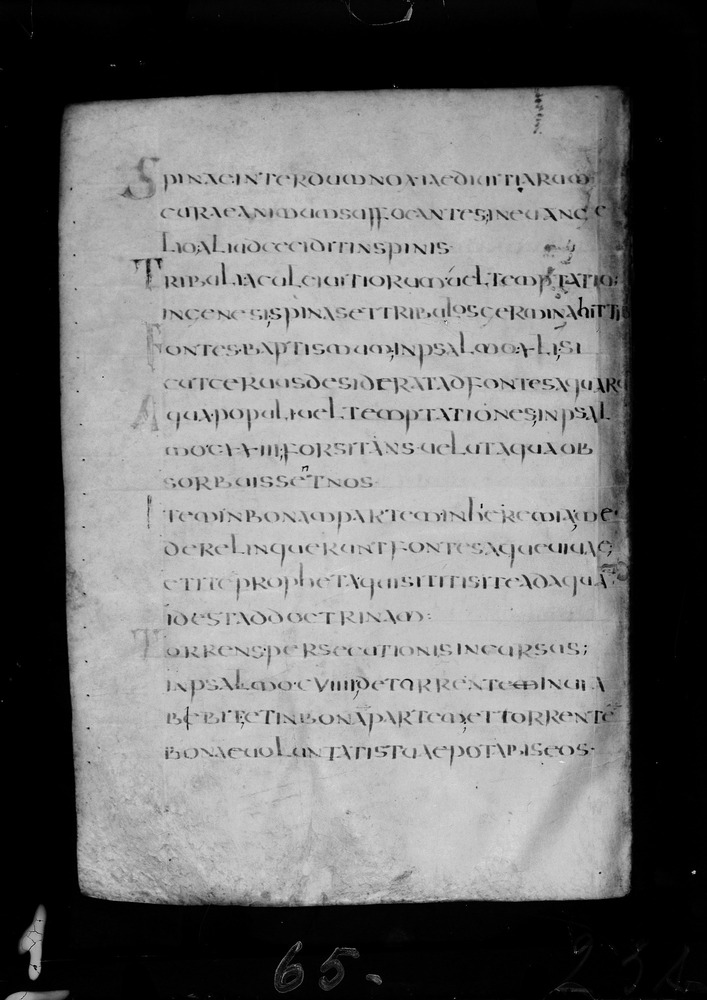 SPINAE INTERDUM NOXIAE DIUITIARUM
CURAE ANIMUM SUFFOCANTES; IN EUANGE
LIO; ALIUD CECIDIT IN SPINIS
TRIBULI ACULEI UITIORUM UEL TEMPTATIO;
IN GENESI; SPINAS ET TRIBULOS GERMINABIT TIBI
FONTES BAPTISMUM; IN PSALMO; XLI; SI
CUT CERUUS DESIDERAT AD FONTES AQUARU
AQUA POPULI UEL TEMPTATIONES; IN PSAL
MO CXXIII; FORSITAN S UELUT AQUA OB
SORBUISSENT NOS
ITEM IN BONAM PARTEM IN HIEREMIA; ME
DERELINQUERUNT FONTES AQUE UIUAE
ET ITE PROPHETA QUI SITITIS ITE AD AQUA
ID EST AD DOCTRINAM:
TORRENS PERSECUTIONIS INCURSUS;
IN PSALMO CVIIII; DE TORRENTE IN UIA
BEBIT; ET IN BONA PARTEM; ET TORRENTE
BONAE UOLUNTATIS TUAE POTABIS EOS
65.